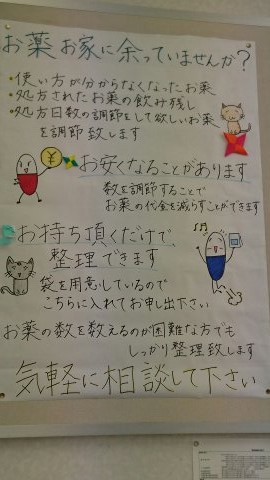 お薬お家に余っていませんか?
・使い方が分からなくなったお薬
・処方されたお薬の飲み残し
・処方日数の調節をして欲しいお薬
を調節致します
お安くなることがあります
数を調節することで
お薬の代金を減らすことができます
お持ち頂くだけで、
整理できます
袋を用意しているので
こちらに入れてお申し出下さい
お薬の数を数えるのが困難な方でも
しっかり整理致します
気軽に相談して下さい